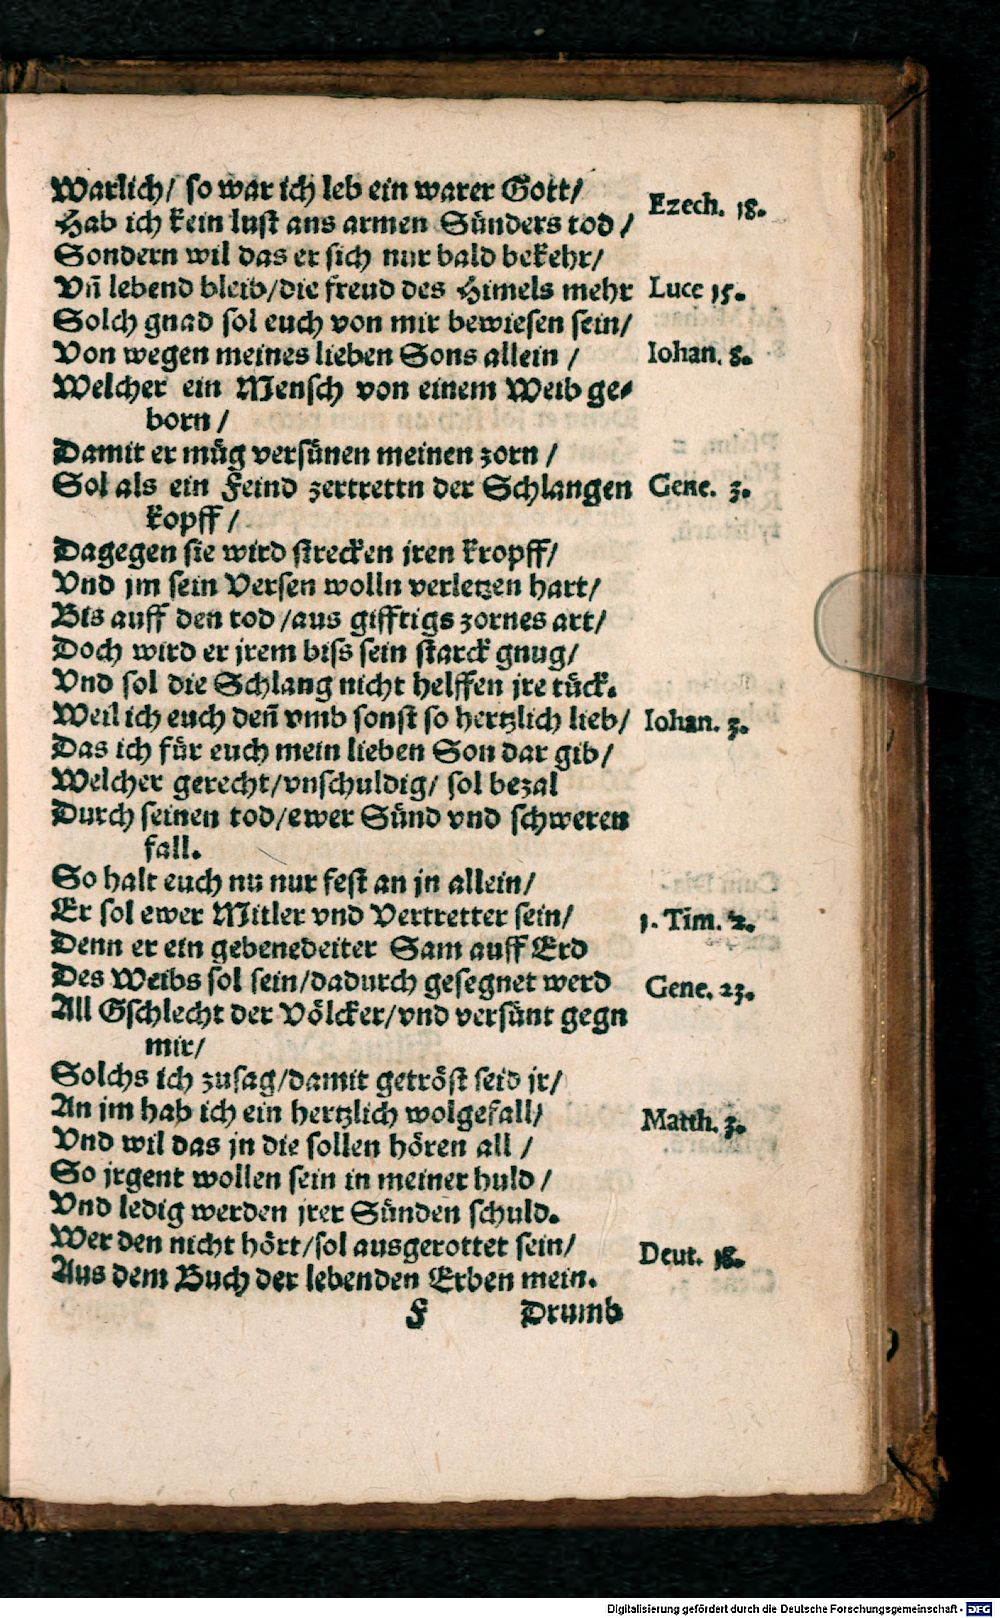 Warlich/ so war ich leb ein warer Gott/
Ezech. 18.
Hab ich kein lust ans armen Sünders tod /
Sondern wil das er sich nur bald bekehr/
Vñ lebend bleib/die freud des Himels mehr
Luce 15.
Solch gnad sol euch von mir bewiesen sein/
Von wegen meines lieben Sons allein /
Iohan. 8.
Welcher ein Mensch von einem Weib ge-
born /
Damit er müg versünen meinen zorn /
Sol als ein Feind zertrettn der Schlangen
Gene. 3.
kopff /
Dagegen sie wird strecken jren kropff/
Vnd jm sein Versen wolln verletzen hart/
Bis auff den tod /aus gifftigs zornes art/
Doch wird er jrem biss sein starck gnug/
Vnd sol die Schlang nicht helffen jre tück.
Weil ich euch deñ vmb sonst so hertzlich lieb/
Iohan. 3.
Das ich für euch mein lieben Son dar gib/
Welcher gerecht/vnschuldig/ sol bezal
Durch seinen tod/ewer Sünd vnd schweren
fall.
So halt euch nu nur fest an jn allein/
Er sol ewer Mitler vnd Vertretter sein/
1. Tim. 2.
Denn er ein gebenedeiter Sam auff Erd
Des Weibs sol sein/dadurch gesegnet werd
Gene. 23.
All Gschlecht der Völcker/vnd versünt gegn
mir/
Solchs ich zusag/damit getröst seid jr/
An jm hab ich ein hertzlich wolgefall/
Matth. 3.
Vnd wil das jn die sollen hören all /
So jrgent wollen sein in meiner huld /
Vnd ledig werden jrer Sünden schuld.
Wer den nicht hört/sol ausgerottet sein/
Deut. 18.
Aus dem Buch der lebenden Erben mein.
F Drumb
Digitalisierung gefördert durch die Deutsche Forschungsgemeinschaft - DFG